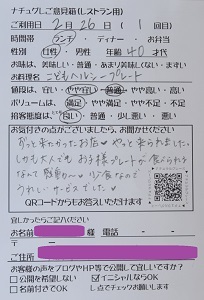 ナチュグレご意見箱(レストラン用)
ご利用日 2月 26日 ( 1 回目)
時間帯 ランチ・ティナー・お弁当
性別 女性・男性 年齢 40 才代
お味は、美味しい・普通・あまり美味しくない・まずい
お料理名 こどもヘルシープレート
値段は、安い・やや安い・普通・やや高い・高い
ボリュームは、満足・やや満足・普通・やや不満・不満
接客態度は、良い・普通・少し悪い・悪い
お気付きの点がございましたら、お聞かせください
ずっと来たかったお店♡ やっと来られました
しかも大人でも お子様プレートが 食べられる
なんて 感動〜♡ 少食なので
うれしいサービスでした♡
QRコードからもお答えいただけます
宜しかったらご記入ください
お名前 様 電話 - -
〒 -
ご住所
お客様の声をブログやHP等で公開して宜しいですか?
□公開を希望しない ☑イニシャルならOK
□名前付きでOK し点でチェックお願いします